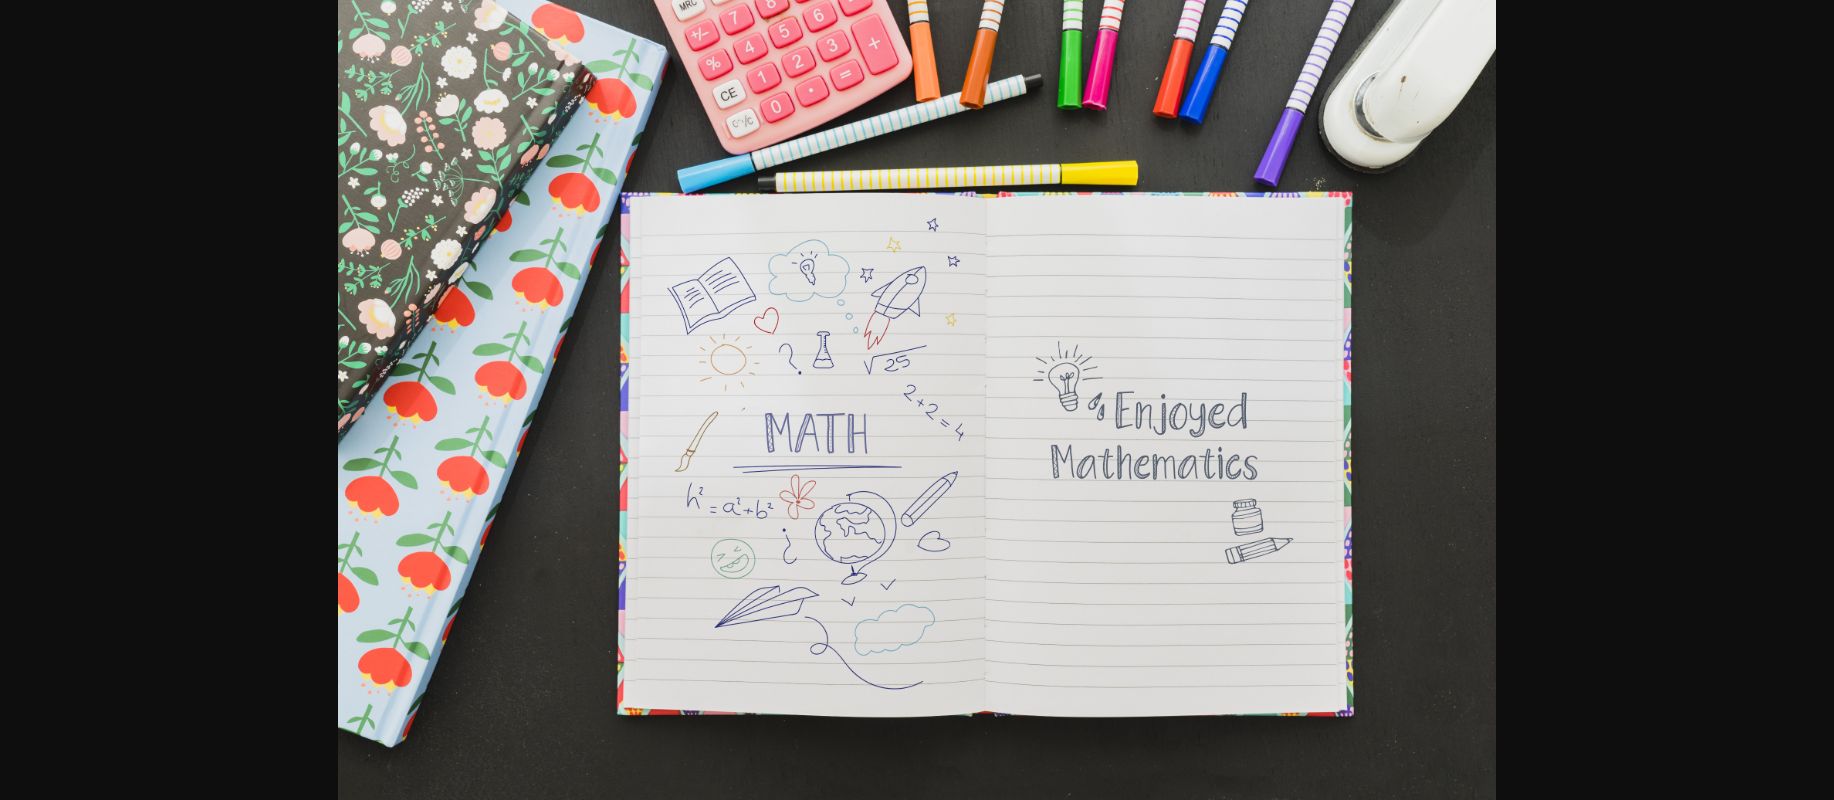 MRC
7
8
+/-
4
5
6
%
1
2
3
+
CE
0
.
=
√25
2+2=4
MATH
h²=a²+b²
?
¿
Enjoyed
Mathematics